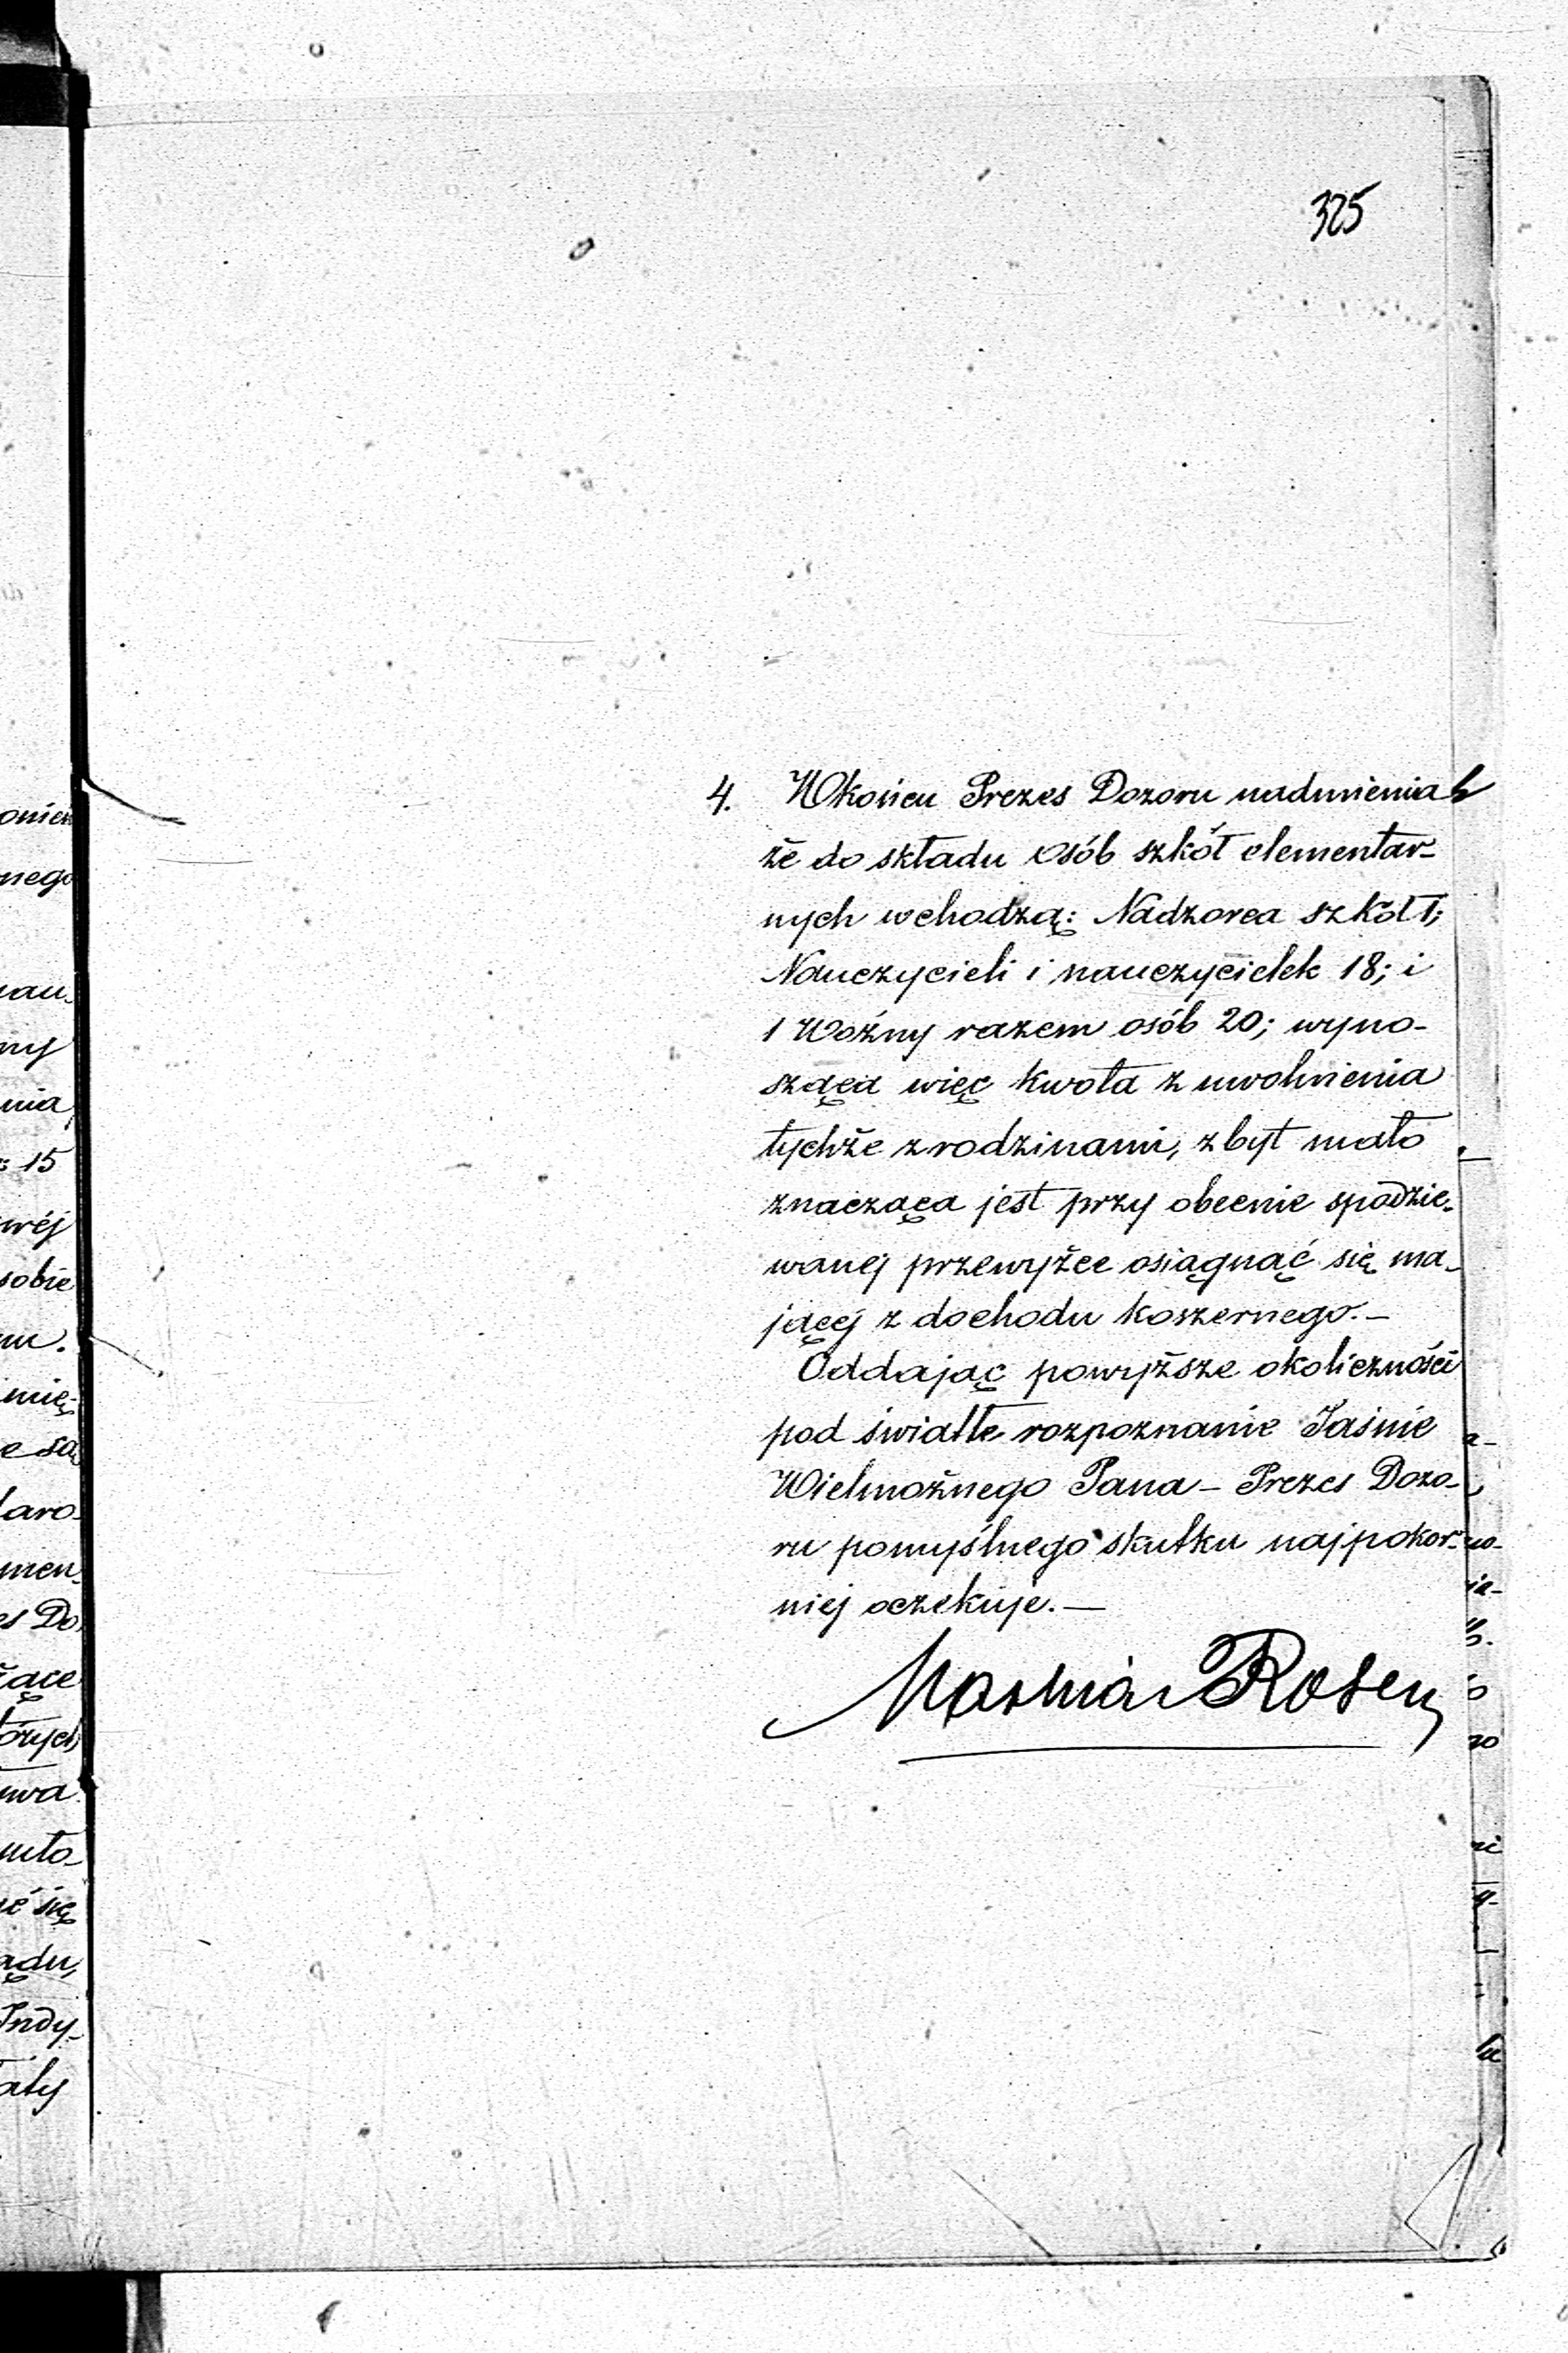 325
4. Wkońcu Prezes Dozoru nadmienia
że do składu osób szkół elementar-
nych wchodzą: Nadzorca szkół 1;
Nauczycieli i nauczycielek 18; i
1 Woźny razem osób 20; wyno-
sząca więc kwota z uwolnienia
tychże z rodzinami, zbyt mało
znacząca jest przy obecnie spodzie-
wanej przewyżce osiągnąć się ma-
jącej z dochodu koszernego.—
Oddając powyższe okoliczności
pod światłe rozpoznanie Jaśnie
Wielmożnego Pana – Prezes Dozo-
ru pomyślnego skutku najpokor-
niej oczekuje.—
Rosen
onień
nego
nau-
ny
nia
: 15
wéj
sobie
mu.
mię-
e są
laro-
men-
es Do
żące
tórych
uwa
uto-
ić się
ądu,
Indy-
ały